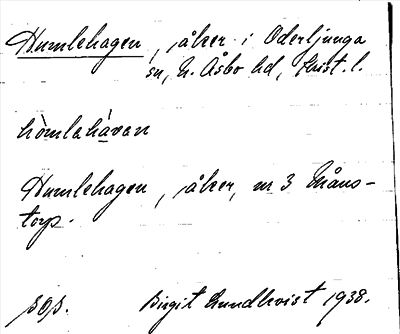 Humlehagen, åker i Oderljunga
sn, N. Åsbo hd, Krist. l.
hòmlahàvan
Humlehagen, åker, m 3 Måns-
torp.
sgs. Birgit Lundkvist 1938.